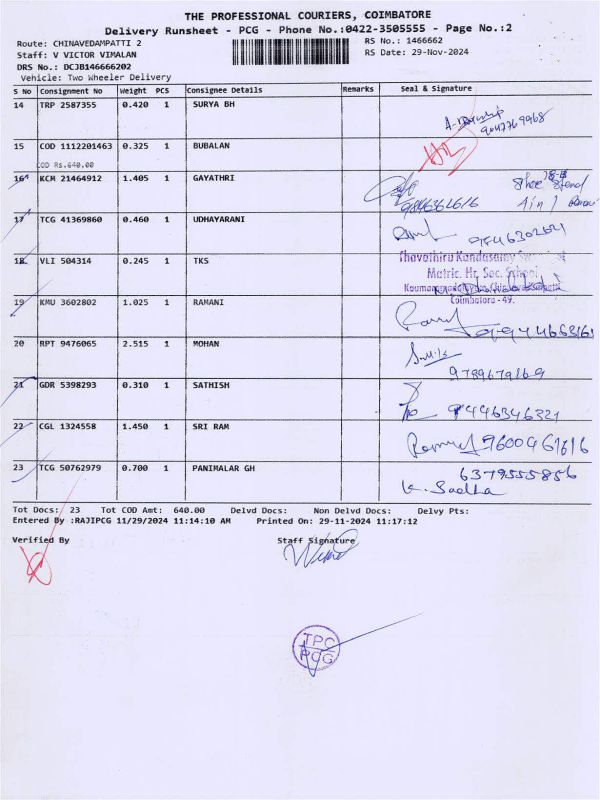 THE PROFESSIONAL COURIERS, COIMBATORE
Delivery Runsheet - PCG - Phone No.:0422-3505555 - Page No.:2
Route: CHINAVEDAMPATTI 2 RS No.: 1466662
Staff: V VICTOR VIMALAN RS Date: 29-Nov-2024
DRS No.: DCJB146666202
Vehicle: Two Wheeler Delivery
S No Consignment No Weight PCS Consignee Details Remarks Seal & Signature
14 TRP 2587355 0.420 1 SURYA BH
9047769968
15 COD 1112201463 0.325 1 BUBALAN
COD Rs.640.00
16 KCM 21464912 1.405 1 GAYATHRI
4 in 1
17 TCG 41369860 0.460 1 UDHAYARANI
18 VLI 504314 0.245 1 TKS
Thavathiru Kandasamy
Matric. Hr. Sec. School
Coimbatore - 49.
19 KMU 3602802 1.025 1 RAMANI
20 RPT 9476065 2.515 1 MOHAN
9789679169
21 GDR 5398293 0.310 1 SATHISH
9446346321
22 CGL 1324558 1.450 1 SRI RAM
9600461616
23 TCG 50762979 0.700 1 PANIMALAR GH
6379555856
K. Sadha
Tot Docs: 23 Tot COD Amt: 640.00 Delvd Docs: Non Delvd Docs: Delvy Pts:
Entered By :RAJIPCG 11/29/2024 11:14:10 AM Printed On: 29-11-2024 11:17:12
Verified By Staff Signature
TPC
PCG